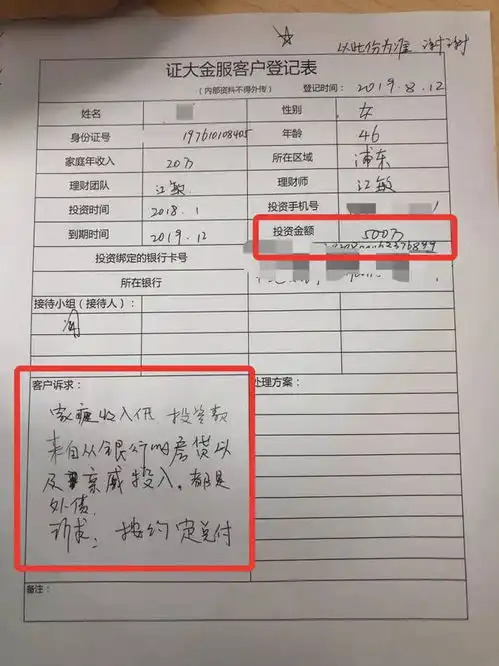 以此份为准 谢谢
证大金服客户登记表
（内部资料不得外传） 登记时间： 2019.8.12
姓名 性别 女
身份证号 197610108405 年龄 46
家庭年收入 20万 所在区域 浦东
理财团队 江敏 理财师 江敏
投资时间 2018.1 投资手机号
到期时间 2019.12 投资金额 500万
投资绑定的银行卡号
所在银行
接待小组（接待人）：
客户诉求： 处理方案：
家庭收入低，投资款
来自从银行的房贷以
及亲戚投入，都是
外债，
诉求：按约定兑付
备注：